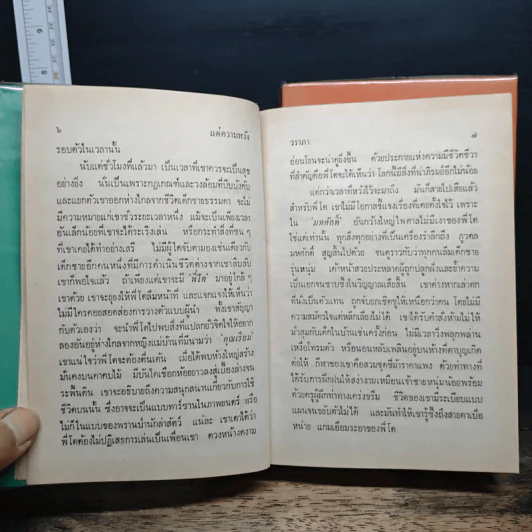 ๖
แด่ความหวัง
รอบตัวในเวลานั้น
นับแต่ชั่วโมงที่แล้วมา เป็นเวลาที่เขาควรจะเป็นสุข
อย่างยิ่ง นั่นเป็นเพราะกฎเกณฑ์และวงล้อมที่บีบบังคับ
และแยกตัวเขาออกห่างไกลจากชีวิตเด็กชายธรรมดา จะไม่
มีความหมายแก่เขาชั่วระยะเวลาหนึ่ง แม้จะเป็นเพียงเวลา
อันเล็กน้อยที่เขาจะได้กระเริงเล่น หรือกระทำสิ่งที่ชน ๆ
ที่เขาเคยได้ทำอย่างเสรี ไม่มีผู้ใดจับตามองเช่นเดียวกับ
เด็กชายอีกคนหนึ่งที่มีการดำเนินชีวิตต่างจากเขาลิบลับ
เขาก็พอใจแล้ว ถ้าเพียงแต่เขาจะมี "พี่โต" มาอยู่ใกล้ ๆ
เขาด้วย เขาจะยุงให้พี่โตลืมหน้าที่ และแจกแจงให้เห็นว่า
ไม่มีใครคอยสอดส่องการวางตัวแบบผู้นำ ทั้งเขาสัญญา
กับตัวเองว่า จะนำพี่โตไปพบสิ่งที่แปลกอัวจิตใจให้อยาก
ลองอันอยู่ห่างไกลจากหญิงแม่บ้านที่มีนามว่า "คุณเรือน"
เขาแน่ใจว่าพี่โตจะต้องตื่นเต้น เมื่อได้พบห้างใหญ่สร้าง
มั่นคงบนคาคบไม้ มีบันไดเชือกห้อยยาวลงสู่เบื้องล่างจน
ระพื้นดิน เขาจะอธิบายถึงความสนุกสนานเกี่ยวกับการใช้
ชีวิตบนนั้น ซึ่งอาจจะเป็นแบบทาร์ซานในภาพยนตร์ หรือ
ไม่ก็ในแบบของพรานป่านักล่าสัตว์ แน่ละ เขาเดาได้ว่า
พี่โตต้องไม่ปฏิเสธการเล่นเป็นเพื่อนเขา ดวงหน้างดงาม
วราภา
๗
อ่อนโยนจะน่าดูยิ่งขึ้น ด้วยประกายแห่งความมีชีวิตชีวา
ที่สำคัญคือพี่โตจะได้เห็นว่า โลกนี้มีสิ่งที่น่าภิรมย์อีกไม่น้อย
แต่กว่าเวลาที่หวังไว้จะมาถึง มันก็สายไปเสียแล้ว
สำหรับพี่โต เขาไม่มีโอกาสชี้แจงเรื่องที่เคยตั้งใจไว้ เพราะ
ใน "มหศักดิ์" อันกว้างใหญ่ไพศาลไม่มีเงาของพี่โต
ใช่แต่เท่านั้น ทุกสิ่งทุกอย่างที่เป็นเครื่องรำลึกถึง ภูวดล
มหศักดิ์ สูญสิ้นไปด้วย จนดูราวกับว่าทุกคนลืมเด็กชาย
รุ่นหนุ่ม เค้าหน้าสวยประหลาดผู้ถูกปลูกฝังและย้ำความ
เป็นเอกจนซาบซึ้งในวิญญาณเสียสิ้น เขาต่างหากเล่าตก
ที่นั่งเป็นตัวแทน ถูกจับยกเชิดชูให้เหนือกว่าคน โดยไม่มี
ความสมัครใจแต่หลีกเลี่ยงไม่ได้ เขาได้รับคำสั่งห้ามไม่ให้
มั่วสุมกับเด็กในบ้านเช่นครั้งก่อน ไม่มีเวลาวิ่งพลุกพล่าน
เหงื่อโทรมตัว หรือนอนหลับเพลินอยู่บนห้างที่ตาบุญเกิด
ต่อให้ กีฬาของเขาคือสวมชุดขี่ม้าราคาแพง ด้วยท่าทางที่
ได้รับการฝึกฝนให้สง่างามเหมือนเจ้าชายหนุ่มน้อยพร้อม
ด้วยครูผู้ฝึกท่าทางเคร่งขรึม ชีวิตของเขามีระเบียบแบบ
แผนจนขยับตัวไม่ได้ และมันทำให้เขารู้ซึ้งถึงสายตาเบื่อ
หน่าย แกมเอือมระอาของพี่โต